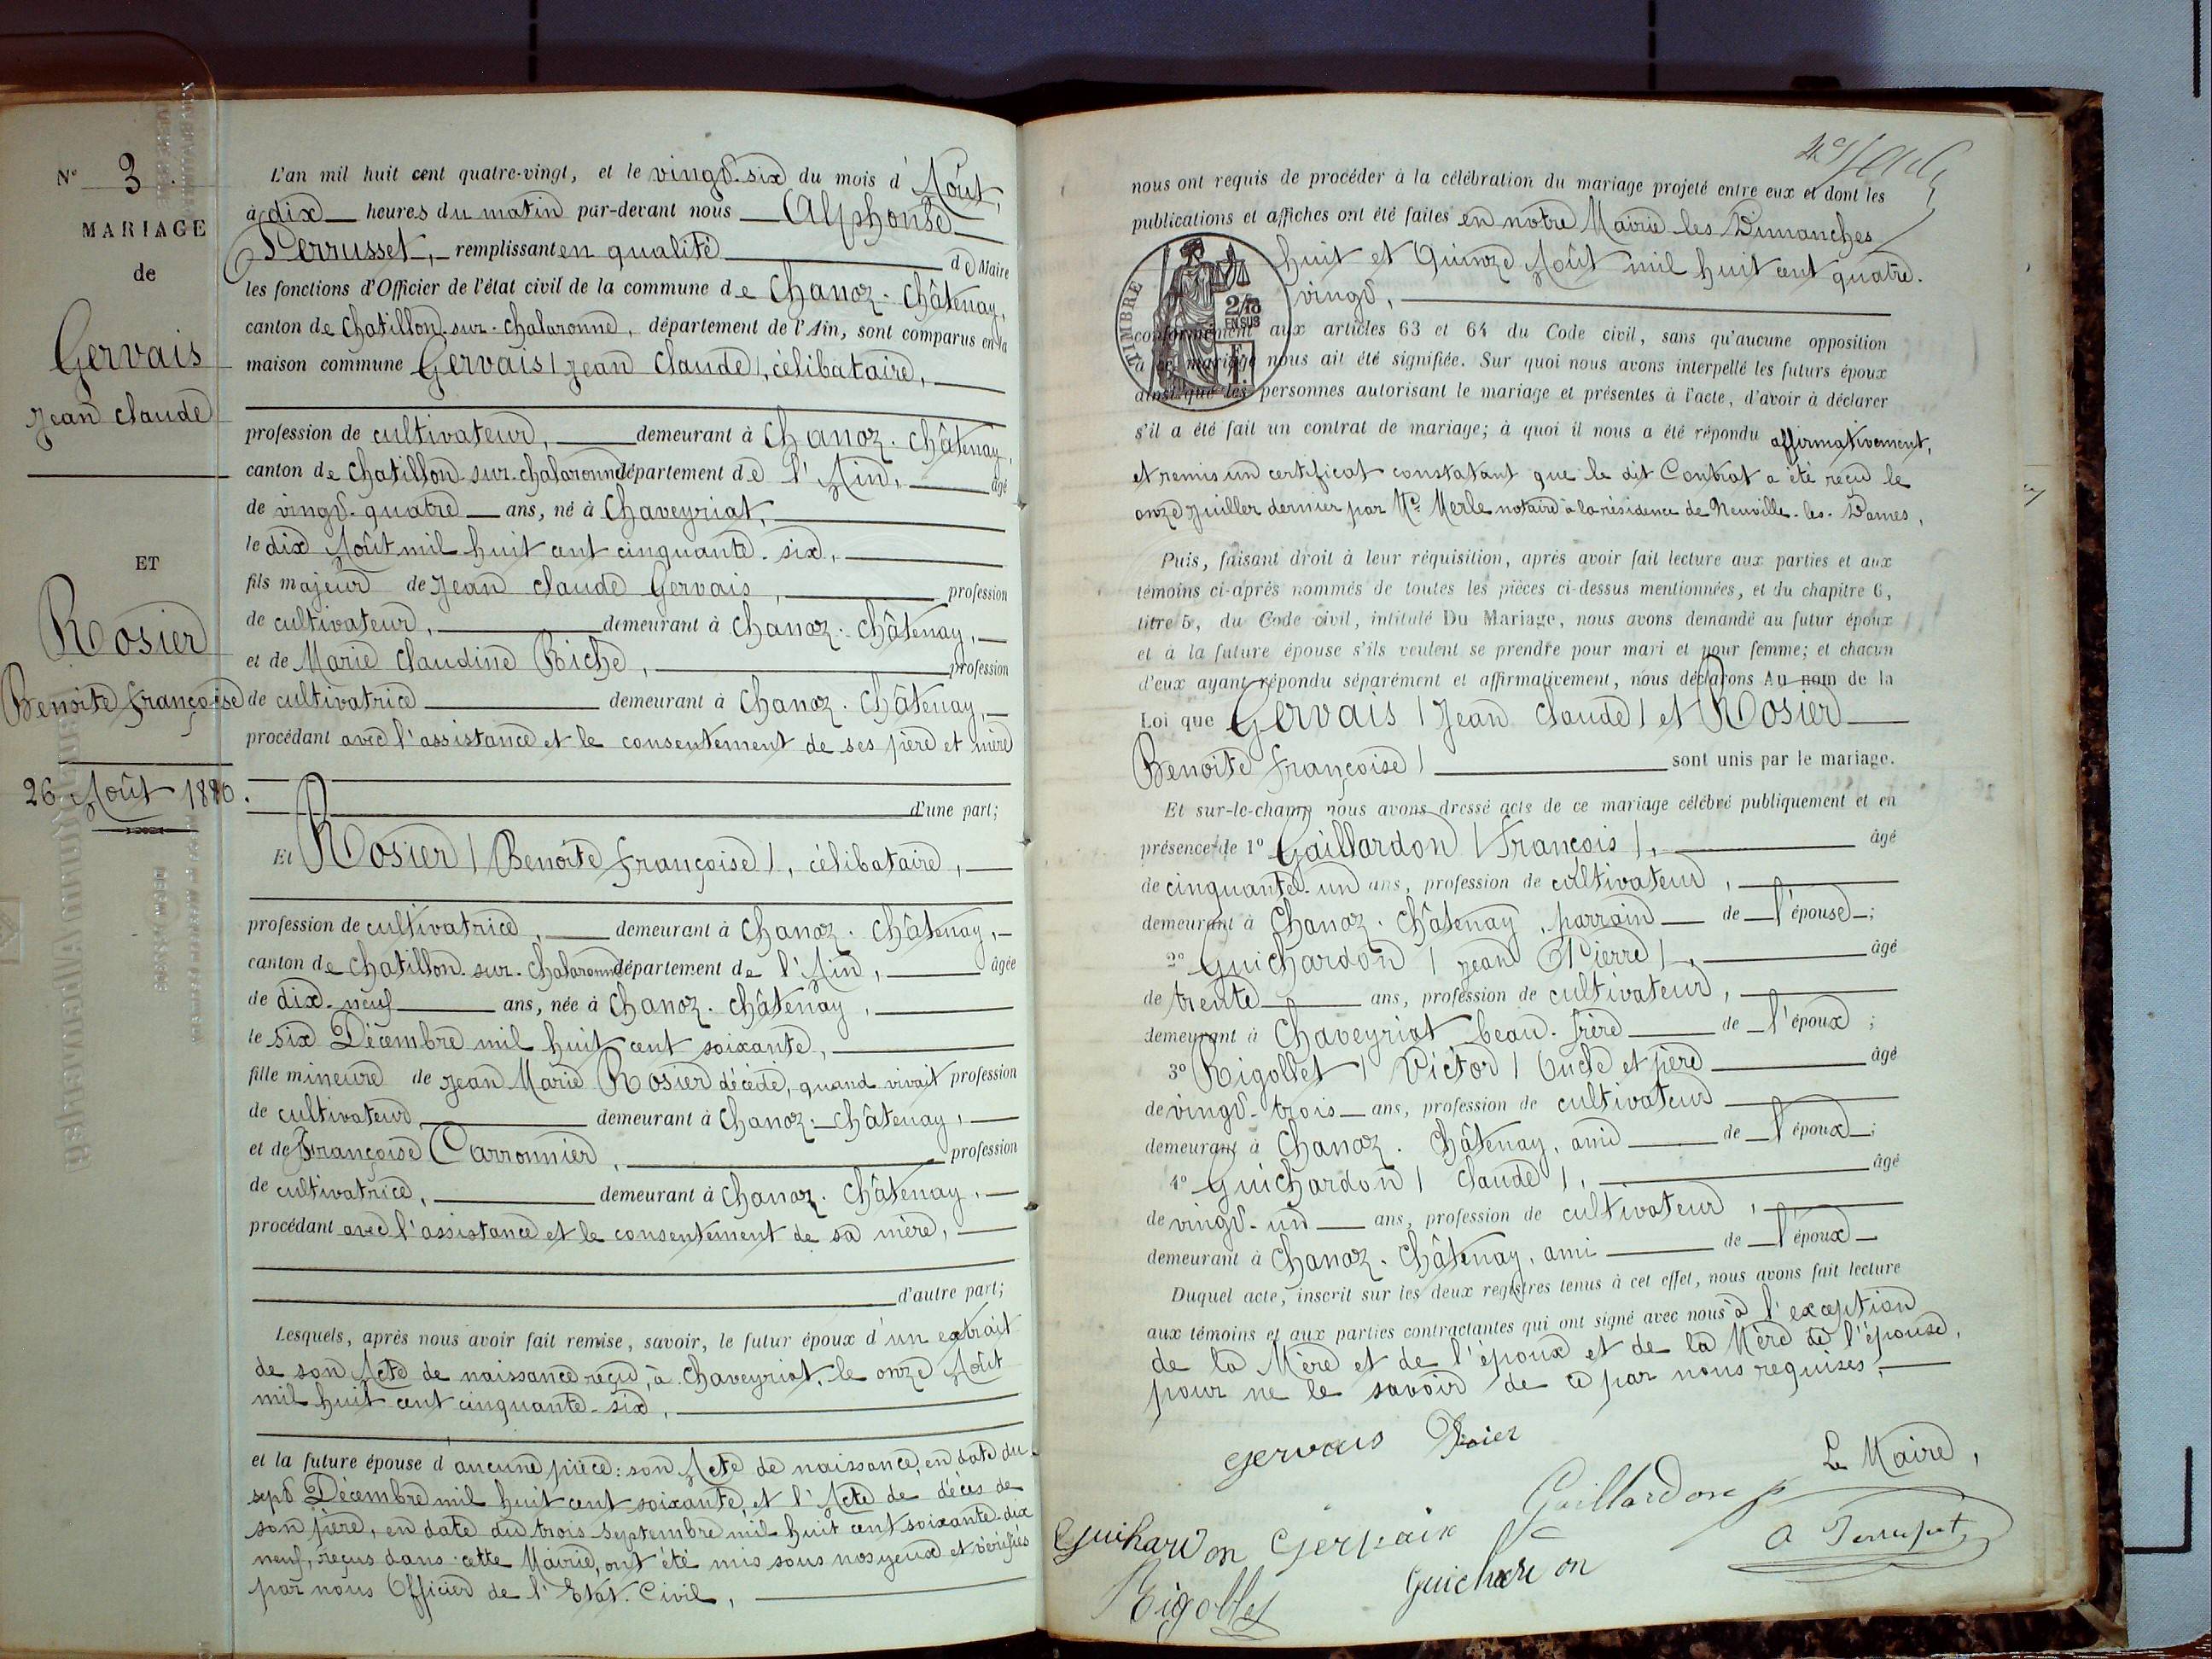 N° 3.
MARIAGE
de
Gervais
Jean Claude
ET
Rosier
Benoite Françoise
26 Août 1880.
L'an mil huit cent quatre-vingt, et le vingt-six du mois d'Août,
à dix heures du matin par-devant nous Alphonse
Perrusset, remplissant en qualité de Maire
les fonctions d'Officier de l'état civil de la commune de Chanoz-Châtenay,
canton de Chatillon-sur-Chalaronne, département de l'Ain, sont comparus en la
maison commune Gervais (Jean Claude), célibataire,
profession de cultivateur, demeurant à Chanoz-Châtenay,
canton de Chatillon-sur-Chalaronne département de l'Ain, âgé
de vingt-quatre ans, né à Chaveyriat,
le dix Août mil huit cent cinquante-six,
fils majeur de Jean Claude Gervais, profession
de cultivateur, demeurant à Chanoz-Châtenay,
et de Marie Claudine Riche, profession
de cultivatrice demeurant à Chanoz-Châtenay,
procédant avec l'assistance et le consentement de ses père et mère
d'une part;
Et Rosier (Benoite Françoise), célibataire,
profession de cultivatrice, demeurant à Chanoz-Châtenay,
canton de Chatillon-sur-Chalaronne département de l'Ain, âgée
de dix-neuf ans, née à Chanoz-Châtenay,
le six Décembre mil huit cent soixante,
fille mineure de Jean Marie Rosier décédé, quand vivait profession
de cultivateur demeurant à Chanoz-Châtenay,
et de Françoise Carronnier, profession
de cultivatrice, demeurant à Chanoz-Châtenay,
procédant avec l'assistance et le consentement de sa mère,
d'autre part;
Lesquels, après nous avoir fait remise, savoir, le futur époux d'un extrait
de son Acte de naissance reçu, à Chaveyriat, le onze Août
mil huit cent cinquante-six,
et la future épouse d'aucune pièce: son Acte de naissance, en date du
sept Décembre mil huit cent soixante, et l'Acte de décès de
son père, en date du trois Septembre mil huit cent soixante-dix
neuf, reçus dans cette Mairie, ont été mis sous nos yeux et vérifiés
par nous Officier de l'Etat-Civil,
nous ont requis de procéder à la célébration du mariage projeté entre eux et dont les
publications et affiches ont été faites en notre Mairie les Dimanches
huit et Quinze Août mil huit cent quatre-
vingt,
TIMBRE
2/10
EN SUS
conformément aux articles 63 et 64 du Code civil, sans qu'aucune opposition
à ce mariage nous ait été signifiée. Sur quoi nous avons interpellé les futurs époux
ainsi que les personnes autorisant le mariage et présentes à l'acte, d'avoir à déclarer
s'il a été fait un contrat de mariage; à quoi il nous a été répondu affirmativement,
et remis un certificat constatant que le dit Contrat a été reçu le
onze Juillet dernier par Me Merle notaire à la résidence de Neuville-les-Dames,
Puis, faisant droit à leur réquisition, après avoir fait lecture aux parties et aux
témoins ci-après nommés de toutes les pièces ci-dessus mentionnées, et du chapitre 6,
titre 5, du Code civil, intitulé Du Mariage, nous avons demandé au futur époux
et à la future épouse s'ils veulent se prendre pour mari et pour femme; et chacun
d'eux ayant répondu séparément et affirmativement, nous déclarons Au nom de la
Loi que Gervais (Jean Claude) et Rosier
Benoite Françoise) sont unis par le mariage.
Et sur-le-champ nous avons dressé acte de ce mariage célébré publiquement et en
présence de 1° Gaillardon (François), âgé
de cinquante-un ans, profession de cultivateur,
demeurant à Chanoz-Châtenay, parrain de l'épouse;
2° Guichardon (Jean Pierre), âgé
de trente ans, profession de cultivateur,
demeurant à Chaveyriat beau-frère de l'époux;
3° Rigollet (Victor) Oncle et père âgé
de vingt-trois ans, profession de cultivateur
demeurant à Chanoz-Châtenay, ami de l'époux;
4° Guichardon (Claude), âgé
de vingt-un ans, profession de cultivateur,
demeurant à Chanoz-Châtenay, ami de l'époux
Duquel acte, inscrit sur les deux registres tenus à cet effet, nous avons fait lecture
aux témoins et aux parties contractantes qui ont signé avec nous à l'exception
de la Mère et de l'époux et de la Mère de l'épouse,
pour ne le savoir de ce par nous requises.
gervais Rosier
Gaillardon
Le Maire,
Guichardon Gervais
A Perrusset
Rigollet
Guichardon